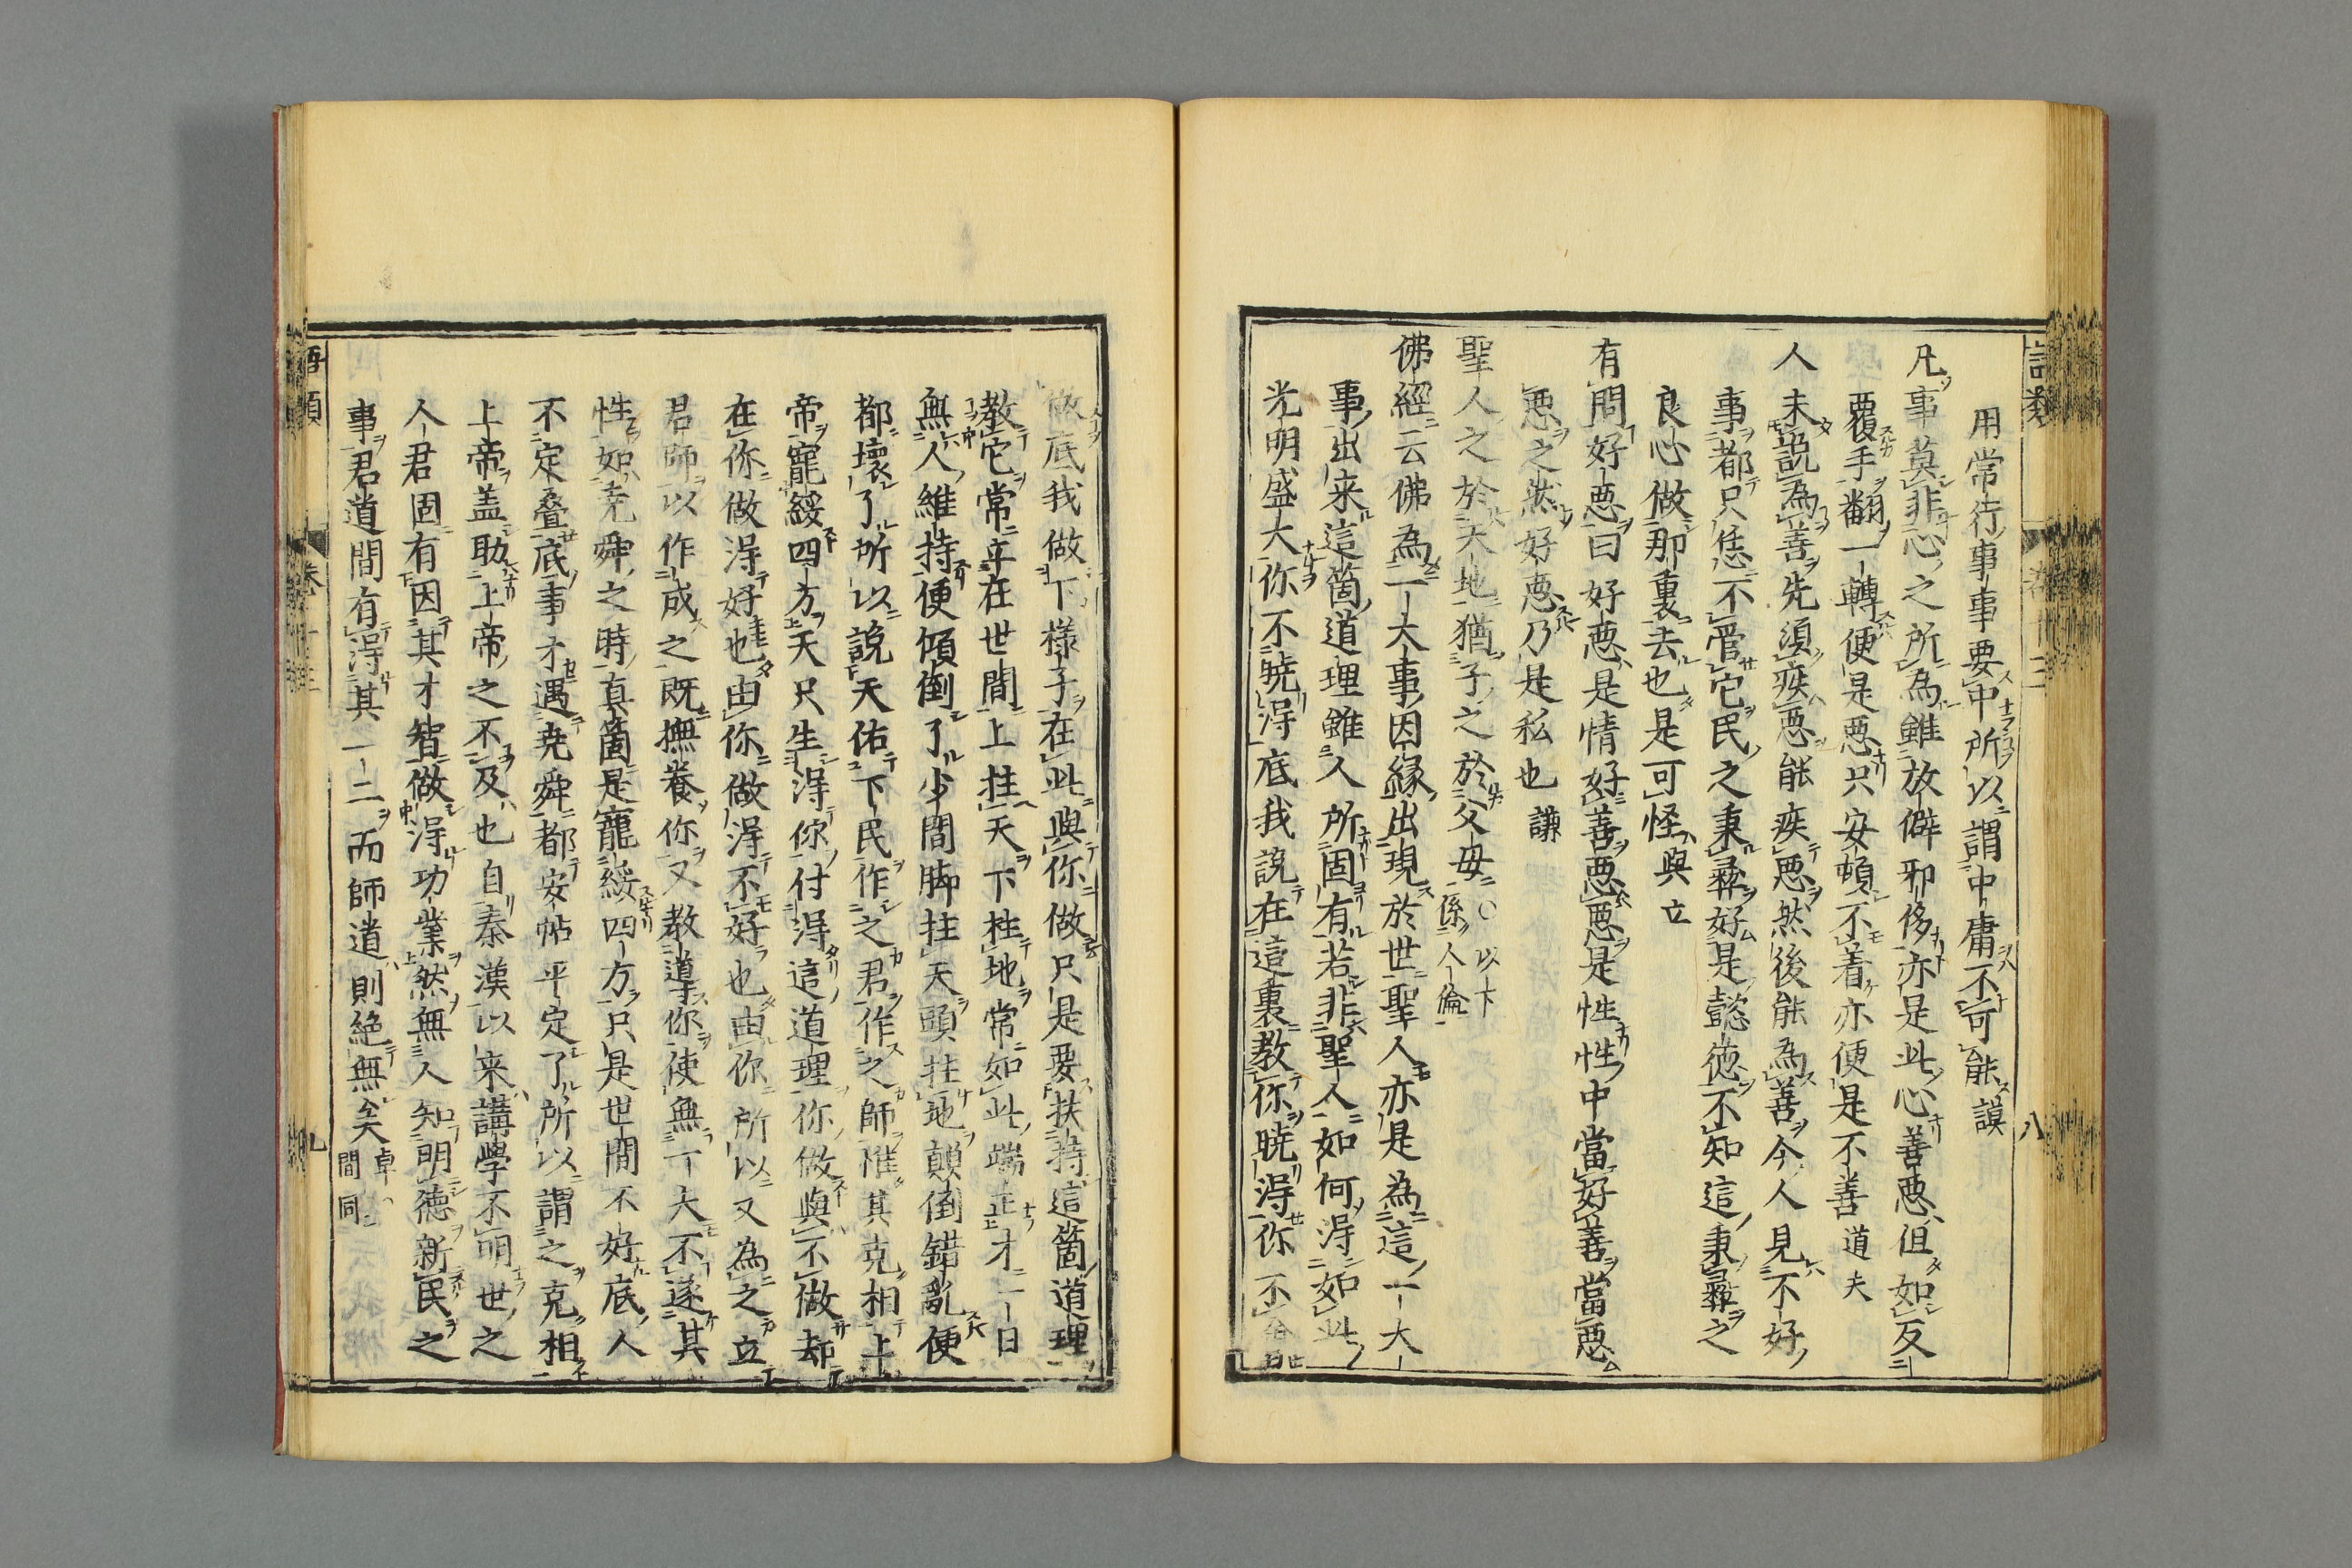 用常行事事要中所以謂中庸不可能謨
凡事莫非心之所為雖放僻邪侈亦是此心善惡但如反
覆手翻一轉便是惡只安頓不着亦便是不善道夫
人未說為善先須疾惡能疾惡然後能為善今人見不好
事都只恁不管它民之秉彝好是懿德不知這秉彝之
良心做那裏去也是可怪與立
有問好惡曰好惡是情好善惡惡是性性中當好善當惡
惡之然好惡乃是私也謙
聖人之於天地猶子之於父母〇以下係人倫
佛經云佛為一大事因縁出現於世聖人亦是為這一大
事出来這箇道理雖人所固有若非聖人如何得如此
光明盛大你不曉得底我說在這裏教你曉得你不會
做底我做下樣子在此與你做只是要扶持這箇道理
教它常立在世間上拄天下柱地常如此端正才一日
無人維持便傾倒了少間脚拄天頭拄地顛倒錯亂便
都壞了所以說天佑下民作之君作之師惟其克相上
帝寵綏四方天只生得你付得這道理你做與不做却
在你做得好也由你做得不好也由你所以又為之立
君師以作成之既撫養你又教導你使無一夫不遂其
性如堯舜之時真箇是寵綏四方只是世間不好底人
不定疊底事才遇堯舜都安帖平定了所以謂之克相
上帝盖助上帝之不及也自秦漢以来講學不明世之
人君固有因其才智做得功業然無人知明德新民之
事君道間有得其一二而師道則絶無矣卓間同
語類
卷十三
八
語類
卷十三
九